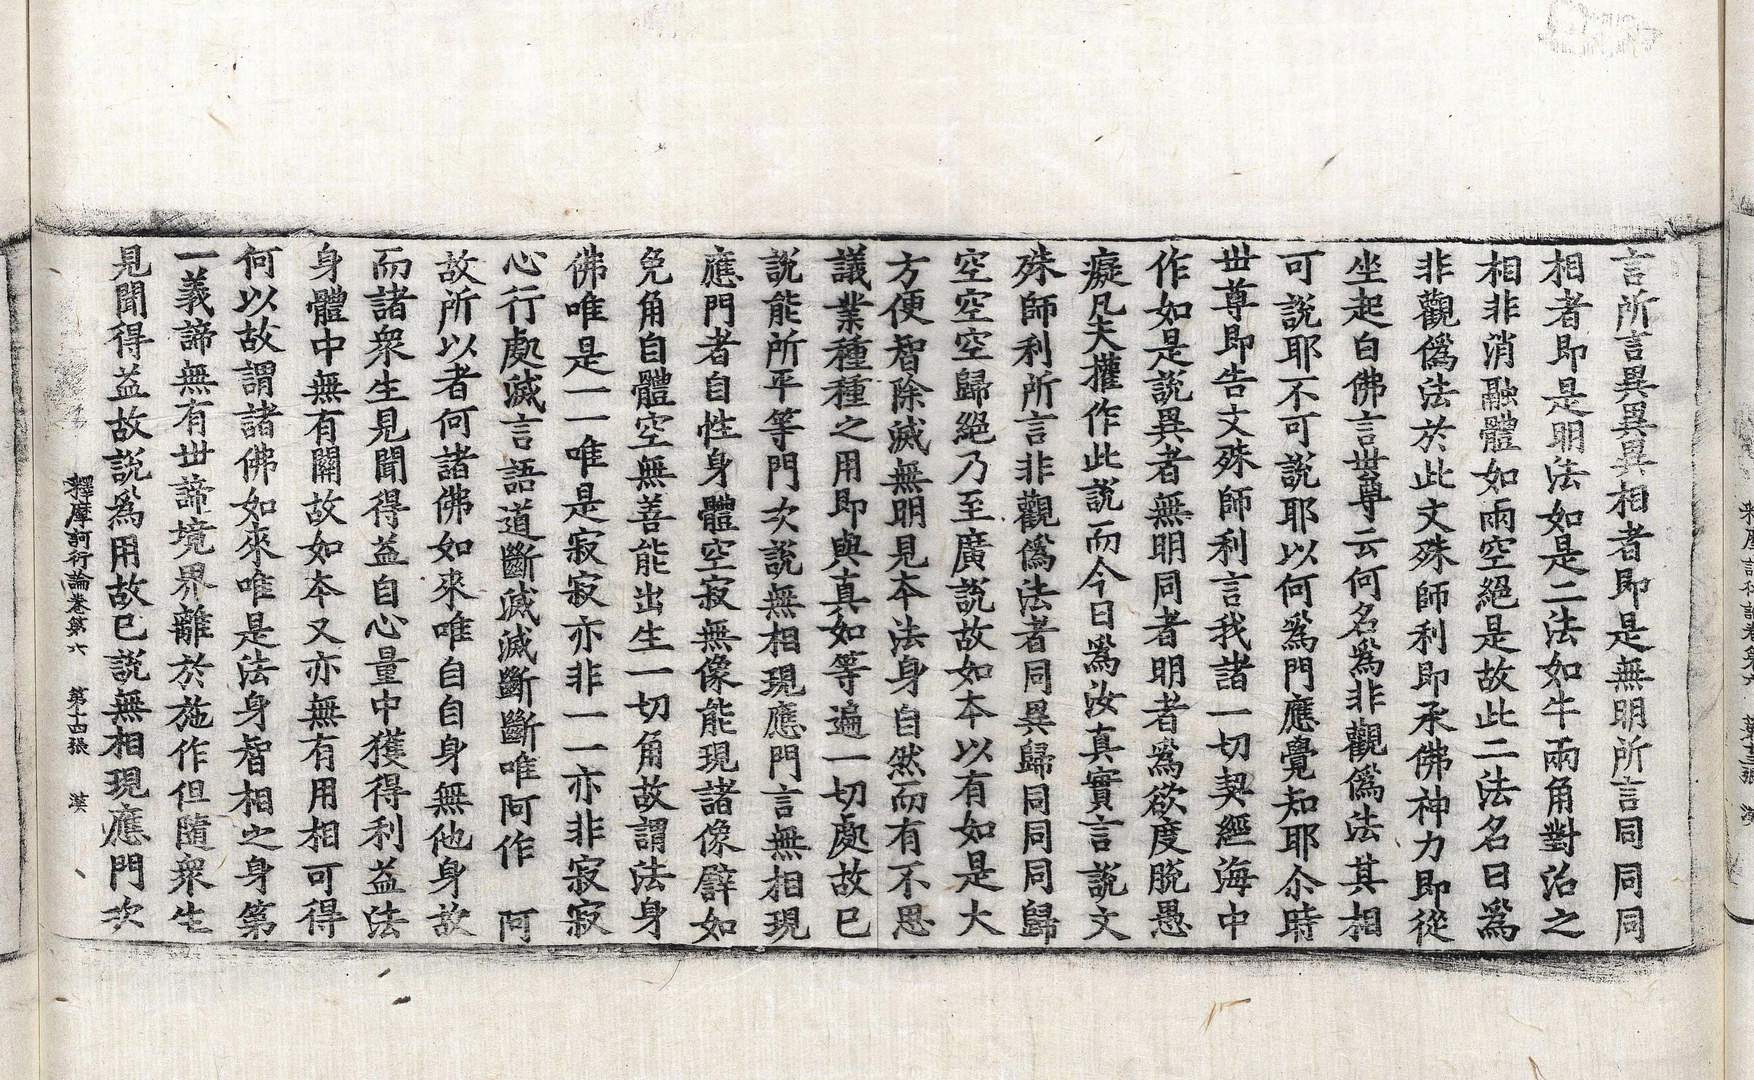 言所言異異異相者即是無明所言同同同
相者即是明法如是二法如牛兩角對治之
相非消融體如兩空絕是故此二法名曰爲
非觀僞法於此文殊師利即承佛神力即從
坐起白佛言世尊云何名爲非觀僞法其相
可說耶不可說耶以何爲門應覺知耶尒時
世尊即告文殊師利言我諸一切契經海中
作如是說異者無明同者明者爲欲度脫愚
癡凡夫權作此說而今日爲汝真實言說文
殊師利所言非觀僞法者同異歸同同同歸
空空空歸絕乃至廣說故如本以有如是大
方便智除滅無明見本法身自然而有不思
議業種種之用即與真如等遍一切處故已
說能所平等門次說無相現應門言無相現
應門者自性身體空寂無像能現諸像譬如
免角自體空無善能出生一切角故謂法身
佛唯是一一唯是寂寂亦非一一亦非寂寂
心行處滅言語道斷滅滅斷斷唯阿作 阿
故所以者何諸佛如來唯自自身無他身故
而諸衆生見聞得益自心量中獲得利益法
身體中無有闕故如本又亦無有用相可得
何以故謂諸佛如來唯是法身智相之身第
一義諦無有世諦境界離於施作但隨衆生
見聞得益故說爲用故已說無相現應門次
釋摩訶衍論卷第六 第十四張 漢